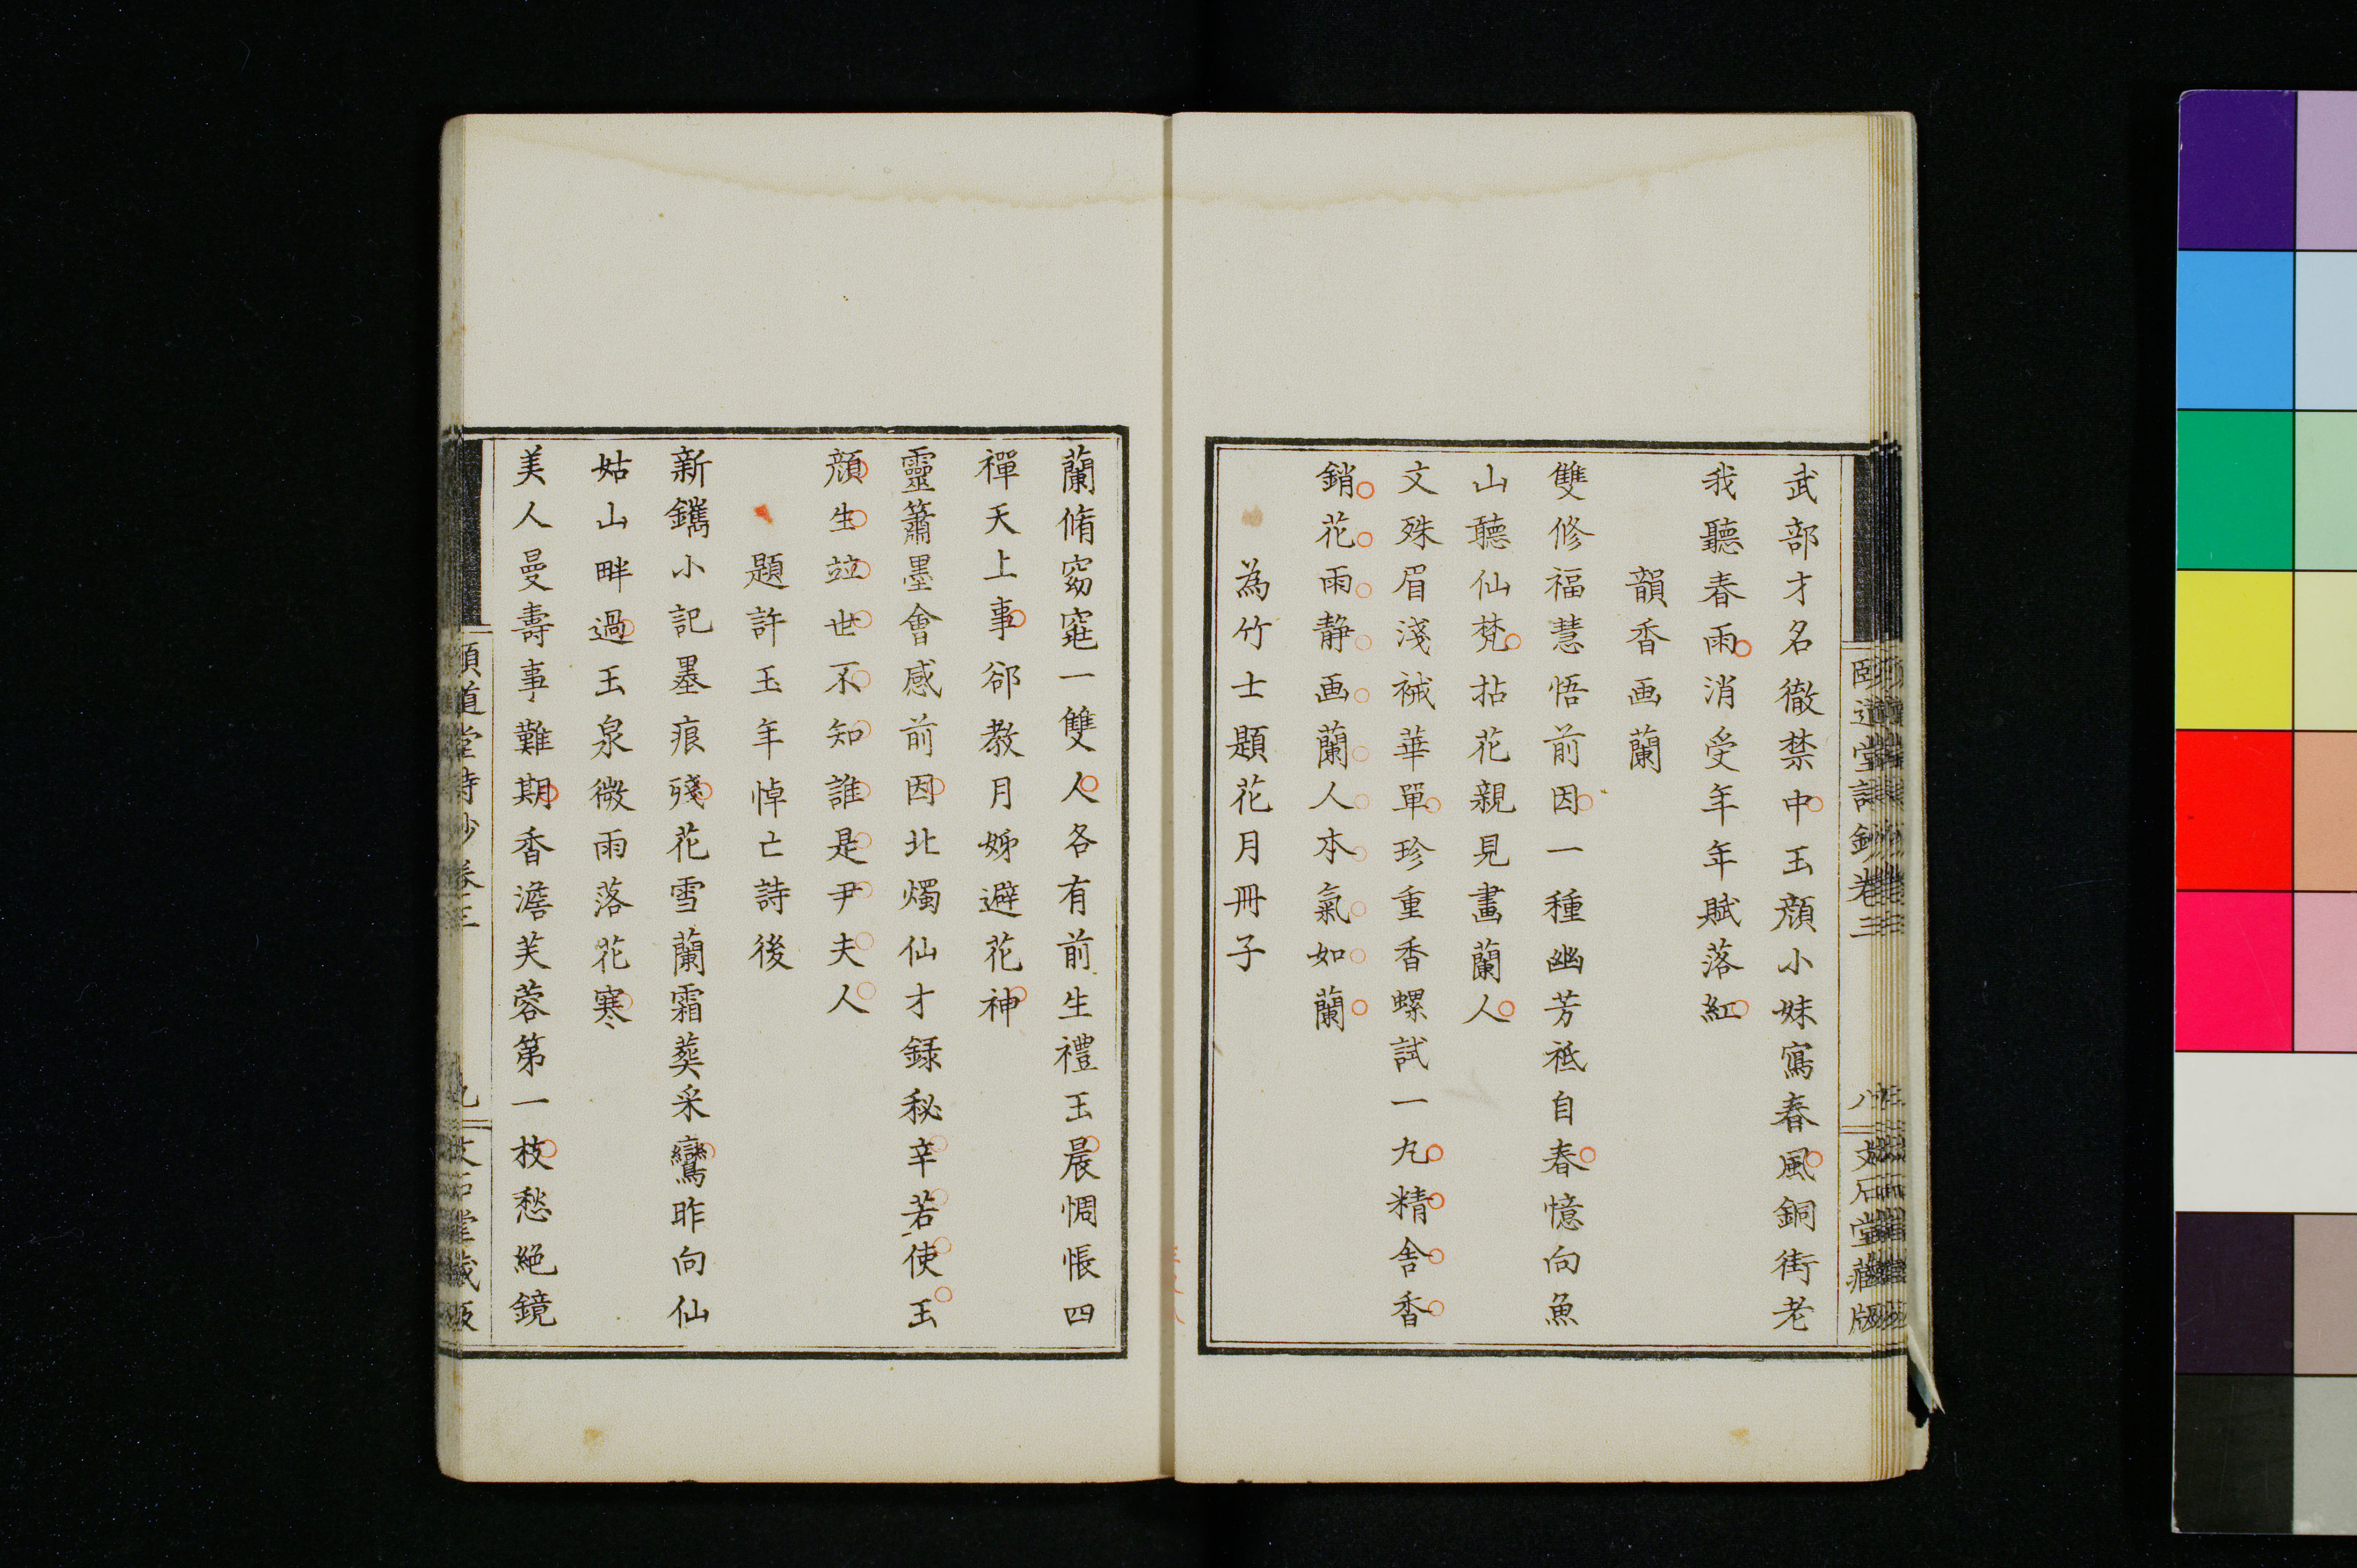 武部才名徹禁中玉顏小妹寫春風銅街老
我聽春雨消受年年賦落紅
韻香画蘭
雙修福慧悟前因一種幽芳祗自春憶向魚
山聽仙梵拈花親見畫蘭人
文殊眉淺祴華單珍重香螺試一九精舍香
銷花雨静画蘭人本氣如蘭
為竹士題花月冊子
頤道堂詩鈔卷三
八
文石堂藏版
蘭脩窈窕一雙人各有前生禮玉晨惆悵四
禪天上事郤教月姊避花神
靈簫墨會感前因北燭仙才録秘辛若使玉
顏生竝世不知誰是尹夫人
題許玉年悼亡詩後
新鐫小記墨痕殘花雪蘭霜葬采鸞昨向仙
姑山畔過玉泉微雨落花寒
美人曼壽事難期香澹芙蓉第一枝愁絕鏡
頤道堂詩鈔卷三
九
文石堂藏版